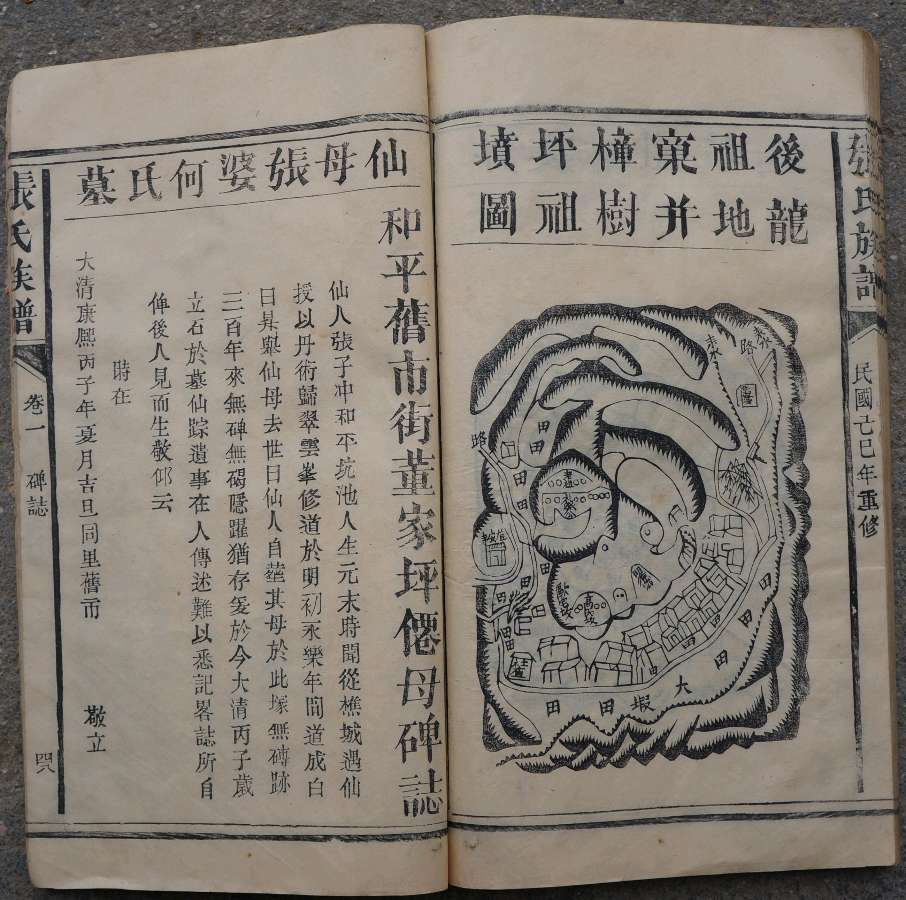 張氏族譜
民國己巳年重修
後龍
祖地
窠并
樟樹
坪祖
墳圖
路
路
田
田
田
田
田
田
田
田
大塅田田
仙母張婆何氏墓
和平舊市街董家坪僊母碑誌
仙人張子冲和平坑池人生元末時聞從樵城遇仙
授以丹術歸翠雲峯修道於明初永樂年間道成白
日昇舉仙母去世日仙人自塟其母於此塚無磚跡
三百年來無碑無碣隱躍猶存爰於今大清丙子歲
立石於墓仙踪遺事在人傳述難以悉記畧誌所自
俾後人見而生敬仰云
時在
大清康熙丙子年夏月吉旦同里舊市
敬立
張氏族譜
卷一
碑誌